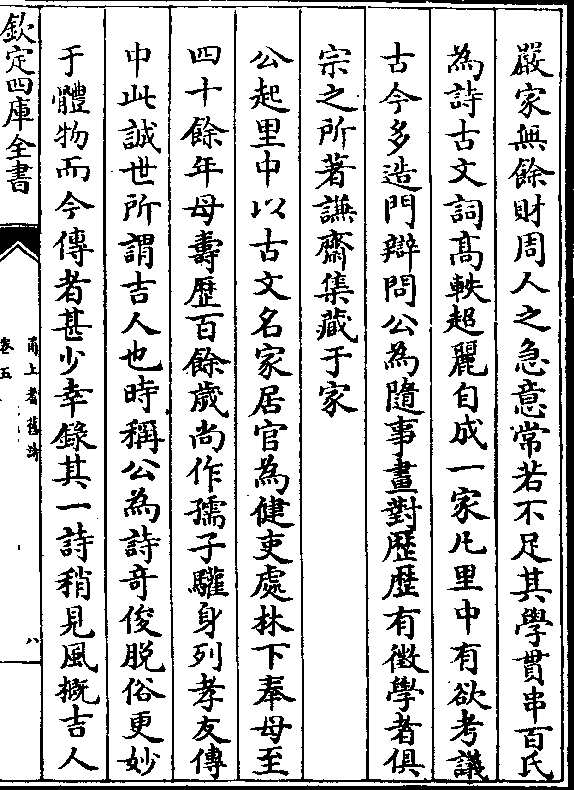 嚴家無餘財周人之急意常若不足其學貫串百氏
為詩古文詞髙軼超麗自成一家凡里中有欲考議
古今多造門辯問公為隨事畫對歴歴有徴學者俱
宗之所著謙齋集藏于家
公起里中以古文名家居官為健吏處林下奉母至
四十餘年母壽歴百餘歲尚作孺子驩身列孝友傳
中此誠世所謂吉人也時稱公為詩奇俊脱俗更妙
于體物而今傳者甚少幸錄其一詩稍見風概吉人
欽定四庫全書
甬上耆舊詩
卷五
八